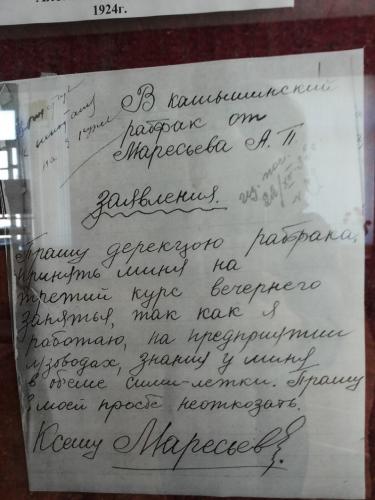 1924г.
В камышинский
рабфак от
Маресьева А. П
заявления.
Прашу дерекцою рабфака,
принять миня на
третий курс вечернего
занятья, так как я
работаю, на предприятии
знания у миня
в обеме сими-летки. Прашу
в моей прозбе неоткозать.
К сему Маресьев